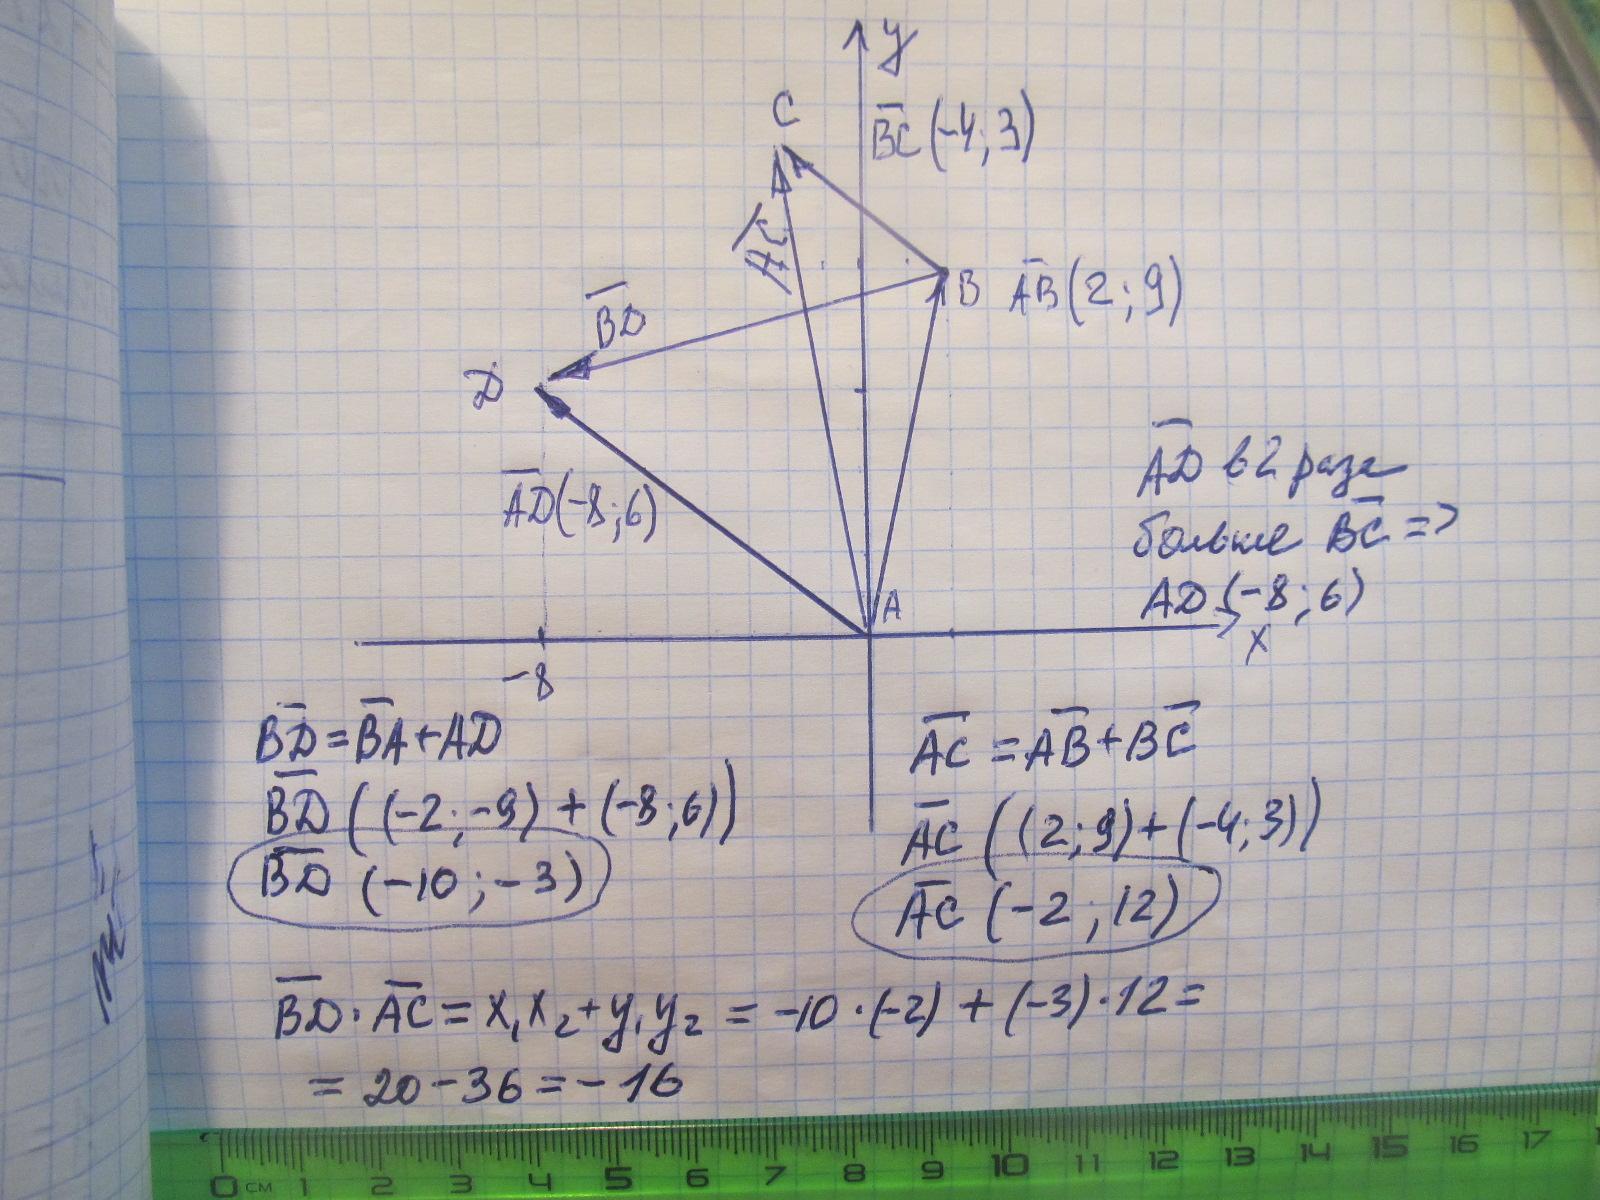 y
C
BC (-4; 3)
AC
BD
B AB (2; 9)
D
AD (-8; 6)
AD в 2 раза
больше BC =>
AD (-8; 6)
A
x
-8
BD = BA + AD
BD ((-2; -9) + (-8; 6))
BD (-10; -3)
AC = AB + BC
AC ((2; 9) + (-4; 3))
AC (-2; 12)
BD · AC = x₁x₂ + y₁y₂ = -10 · (-2) + (-3) · 12 =
= 20 - 36 = -16
0 см 1 2 3 4 5 6 7 8 9 10 11 12 13 14 15 16 17